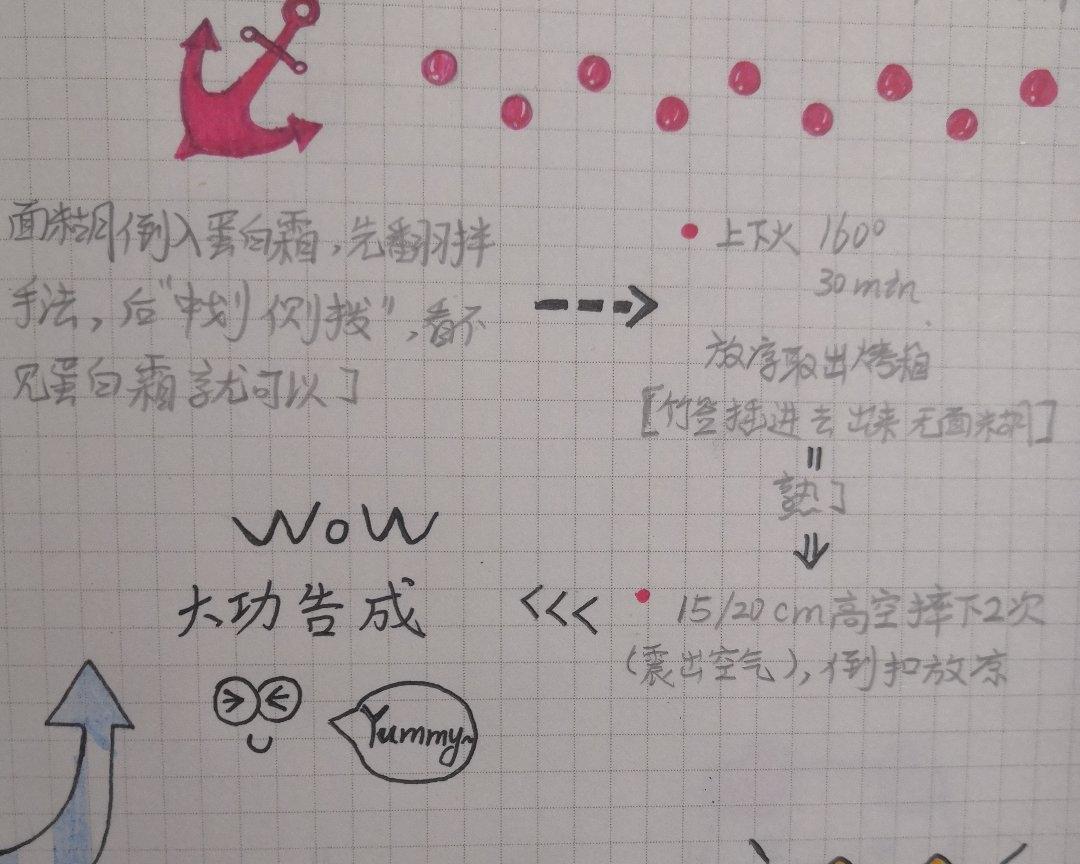 面糊倒入蛋白霜，先翻拌
手法，后"中划 侧拨"，看不
见蛋白霜就可以了
上下火 160°
30min
放凉取出烤箱
[竹签插进去 出来 无面糊]
熟了
15/20cm高空摔下2次
(震出空气)，倒扣放凉
WoW
大功告成
Yummy~